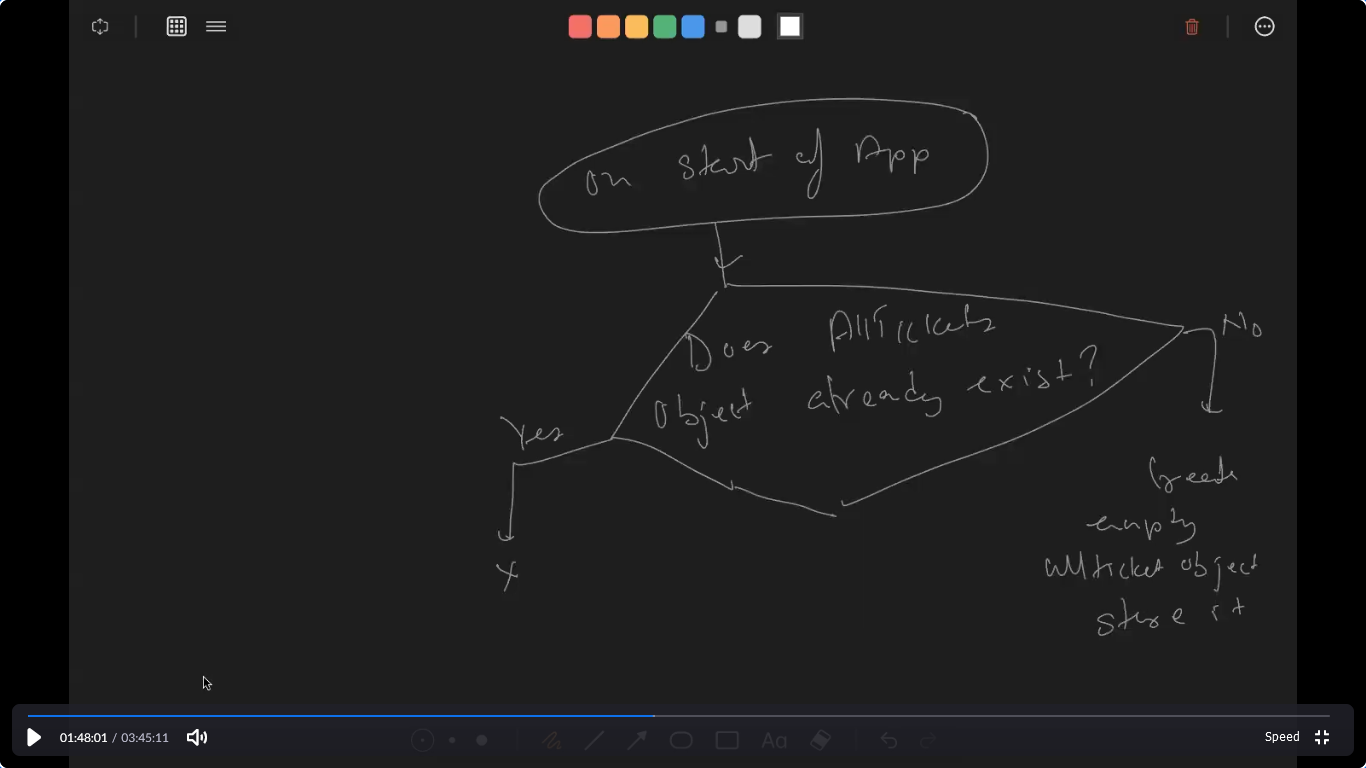 on start of App
Does AllTickets
object already exist?
No
Yes
X
Create
empty
allticket object
store it
Aa
01:48:01 / 03:45:11
Speed